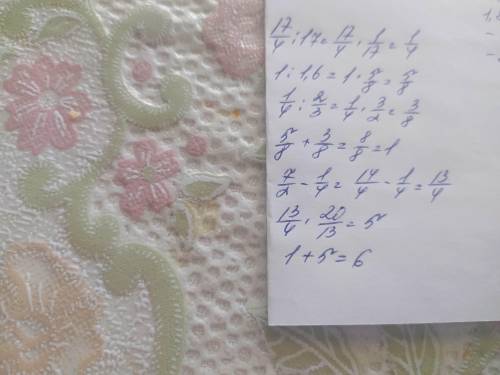 17/4 : 17 = 17/4 · 1/17 = 1/4
1 : 1,6 = 1 · 5/8 = 5/8
1/4 : 2/3 = 1/4 · 3/2 = 3/8
5/8 + 3/8 = 8/8 = 1
7/2 - 1/4 = 14/4 - 1/4 = 13/4
13/4 · 20/13 = 5
1 + 5 = 6